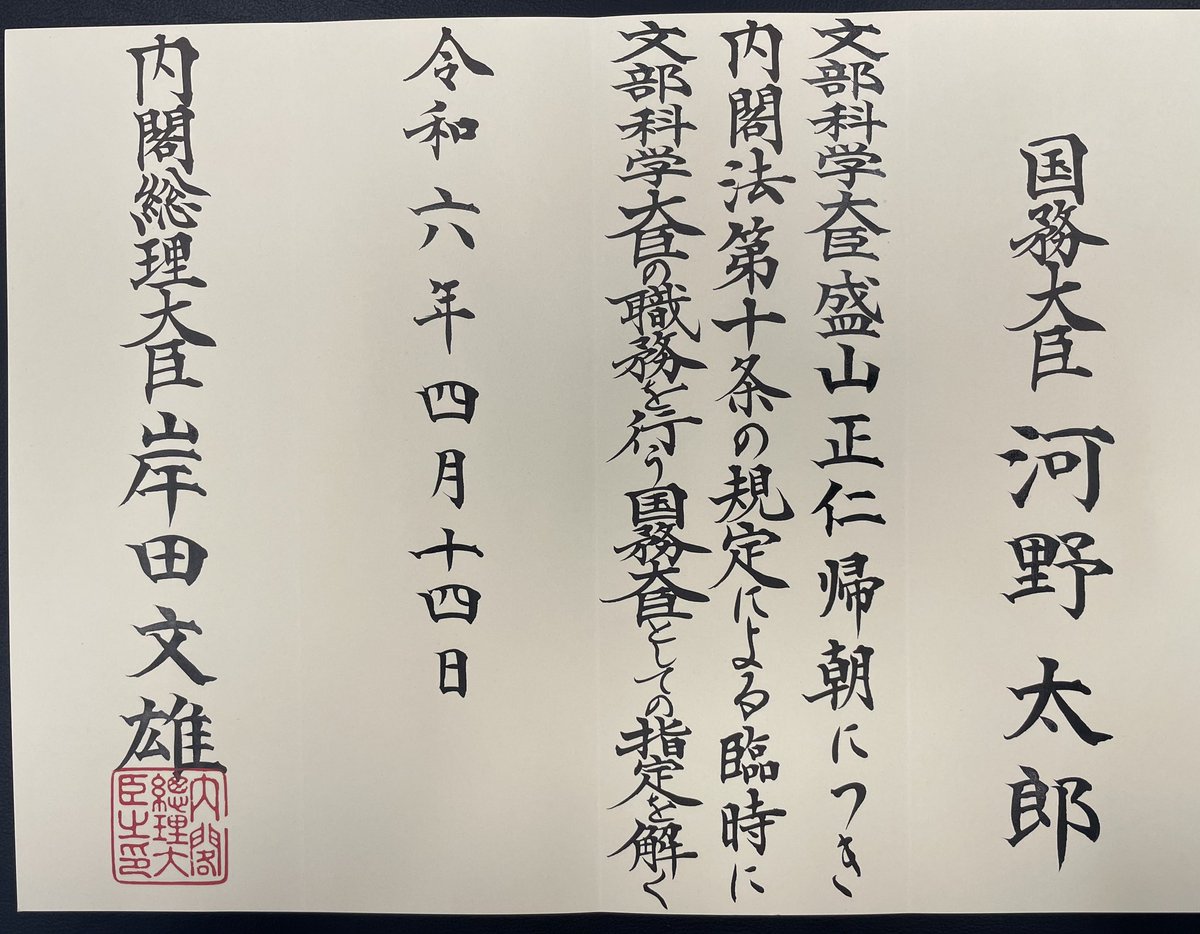 国務大臣 河野太郎
文部科学大臣盛山正仁帰朝につき
内閣法第十条の規定による臨時に
文部科学大臣の職務を行う国務大臣としての指定を解く
令和六年四月十四日
内閣総理大臣 岸田文雄
内閣
總理大
臣之印